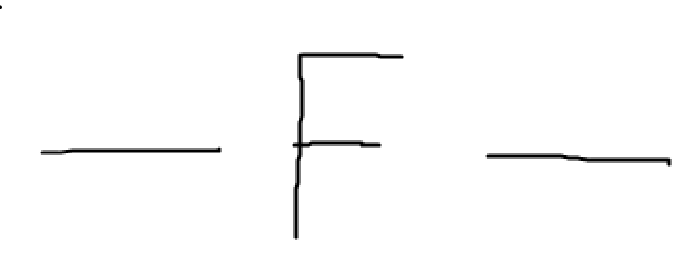 — F —